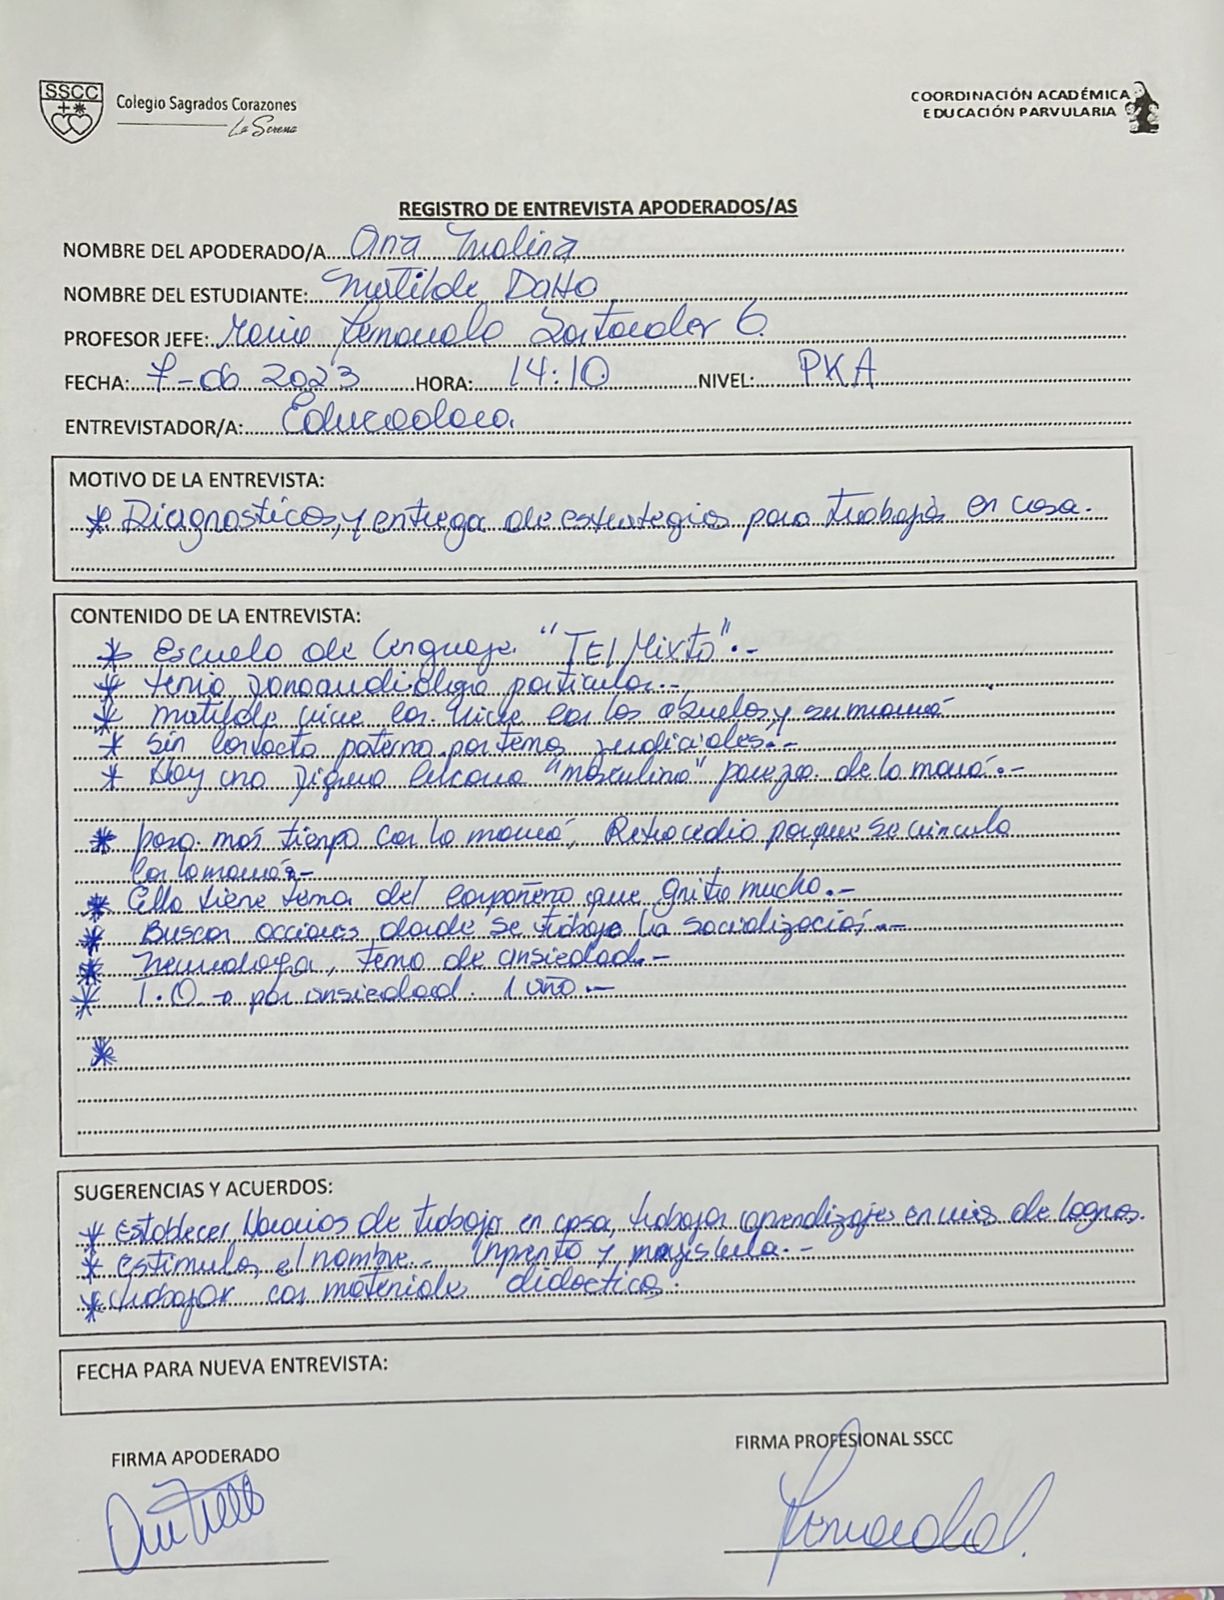 SSCC
Colegio Sagrados Corazones
La Serena
COORDINACIÓN ACADÉMICA
EDUCACIÓN PARVULARIA
REGISTRO DE ENTREVISTA APODERADOS/AS
NOMBRE DEL APODERADO/A Ana Molina
NOMBRE DEL ESTUDIANTE: Matilde Datto
PROFESOR JEFE: María Fernanda Santander G.
FECHA: 7-06 2023 HORA: 14:10 NIVEL: PKA
ENTREVISTADOR/A: Educadora.
MOTIVO DE LA ENTREVISTA:
* Diagnosticos, y entrega de estrategias para trabajar en casa.
CONTENIDO DE LA ENTREVISTA:
* Escuela de lenguaje. "TEL Mixto".-
* tenia fonoaudiologia particular.-
* Matilde vive con vive con los abuelos y su mamá
* Sin contacto paterno por tema judiciales.-
* Hay una figura cercana "masculina" pareja de la mamá.-
* pasa más tiempo con la mamá, Retrocedio porque se vinculo
con la mamá.-
* Ella tiene tema del compañero que grita mucho.-
* Buscar acciones donde se trabaje la socialización.-
* Neurologa, tema de ansiedad.-
* T.O → por ansiedad. 1 año.-
*
SUGERENCIAS Y ACUERDOS:
* Establecer Horarios de trabajo en casa, trabajar aprendizajes en vias de logros.
* Estimular el nombre.- Imprenta y mayúscula.-
* trabajar con materiales didactico.
FECHA PARA NUEVA ENTREVISTA:
FIRMA APODERADO
FIRMA PROFESIONAL SSCC